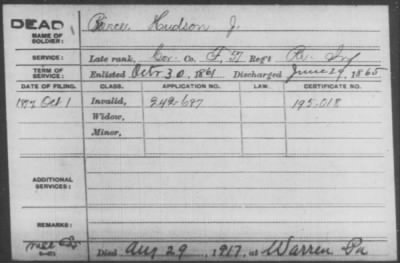 DEAD
NAME OF SOLDIER: Hudson J.
SERVICE: Late rank, Co. Reg't Inf
TERM OF SERVICE: Enlisted Oct 30, 1861 Discharged June 29, 1865
DATE OF FILING. CLASS. APPLICATION NO. LAW. CERTIFICATE NO.
Oct 1 Invalid, 242-687 195.018
Widow,
Minor,
ADDITIONAL SERVICES:
REMARKS:
Died Aug 29 1917, at Warren Pa